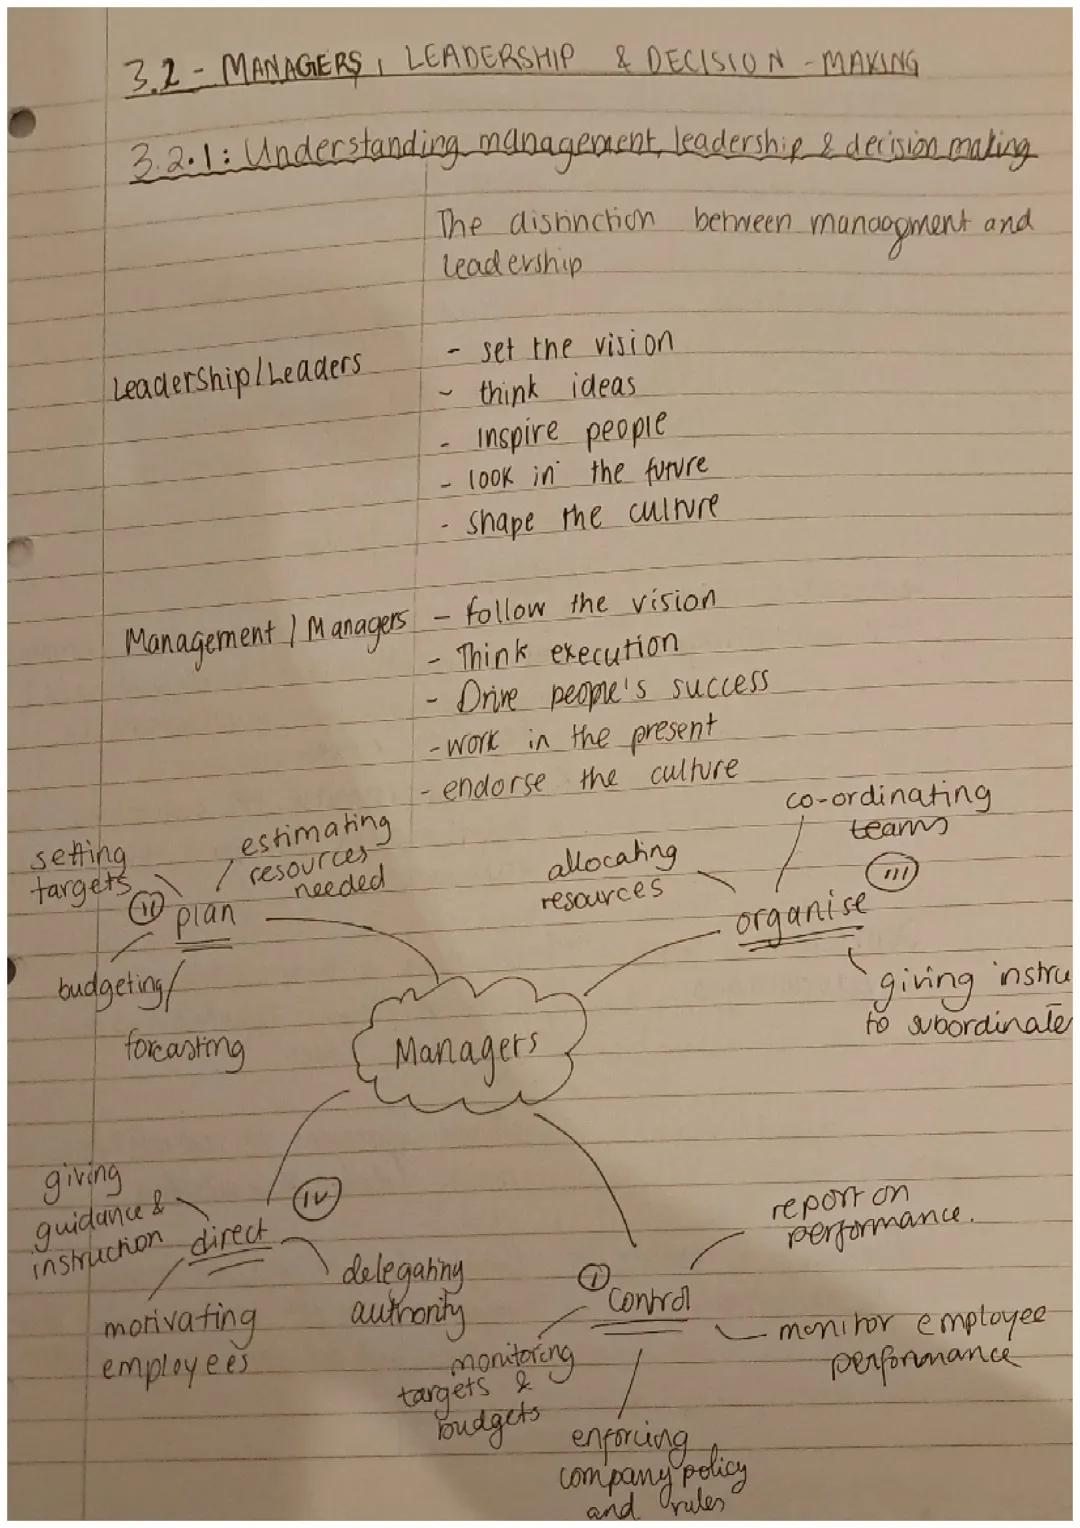 3.2 - MANAGERS, LEADERSHIP & DECISION - MAKING
3.2.1: Understanding management, leadership & decision making
The distinction between managment and
leadership
Leadership/Leaders
- set the vision
- think ideas
- Inspire people
- look in the future
- shape the culture
Management / Managers
- follow the vision
- Think execution
- Drive people's success
- work in the present
- endorse the culture
setting
targets
estimating
resources
needed
(ii) plan
budgeting/
forcasting
allocating
resources
co-ordinating
teams
(iii)
organise
giving instru
to subordinate
Managers
giving
guidance &
instruction
(iv)
direct
delegating
authority
motivating
employees
(i) Control
report on
performance.
monitor employee
performance
monitoring
targets &
budgets
enforcing
company policy
and rules